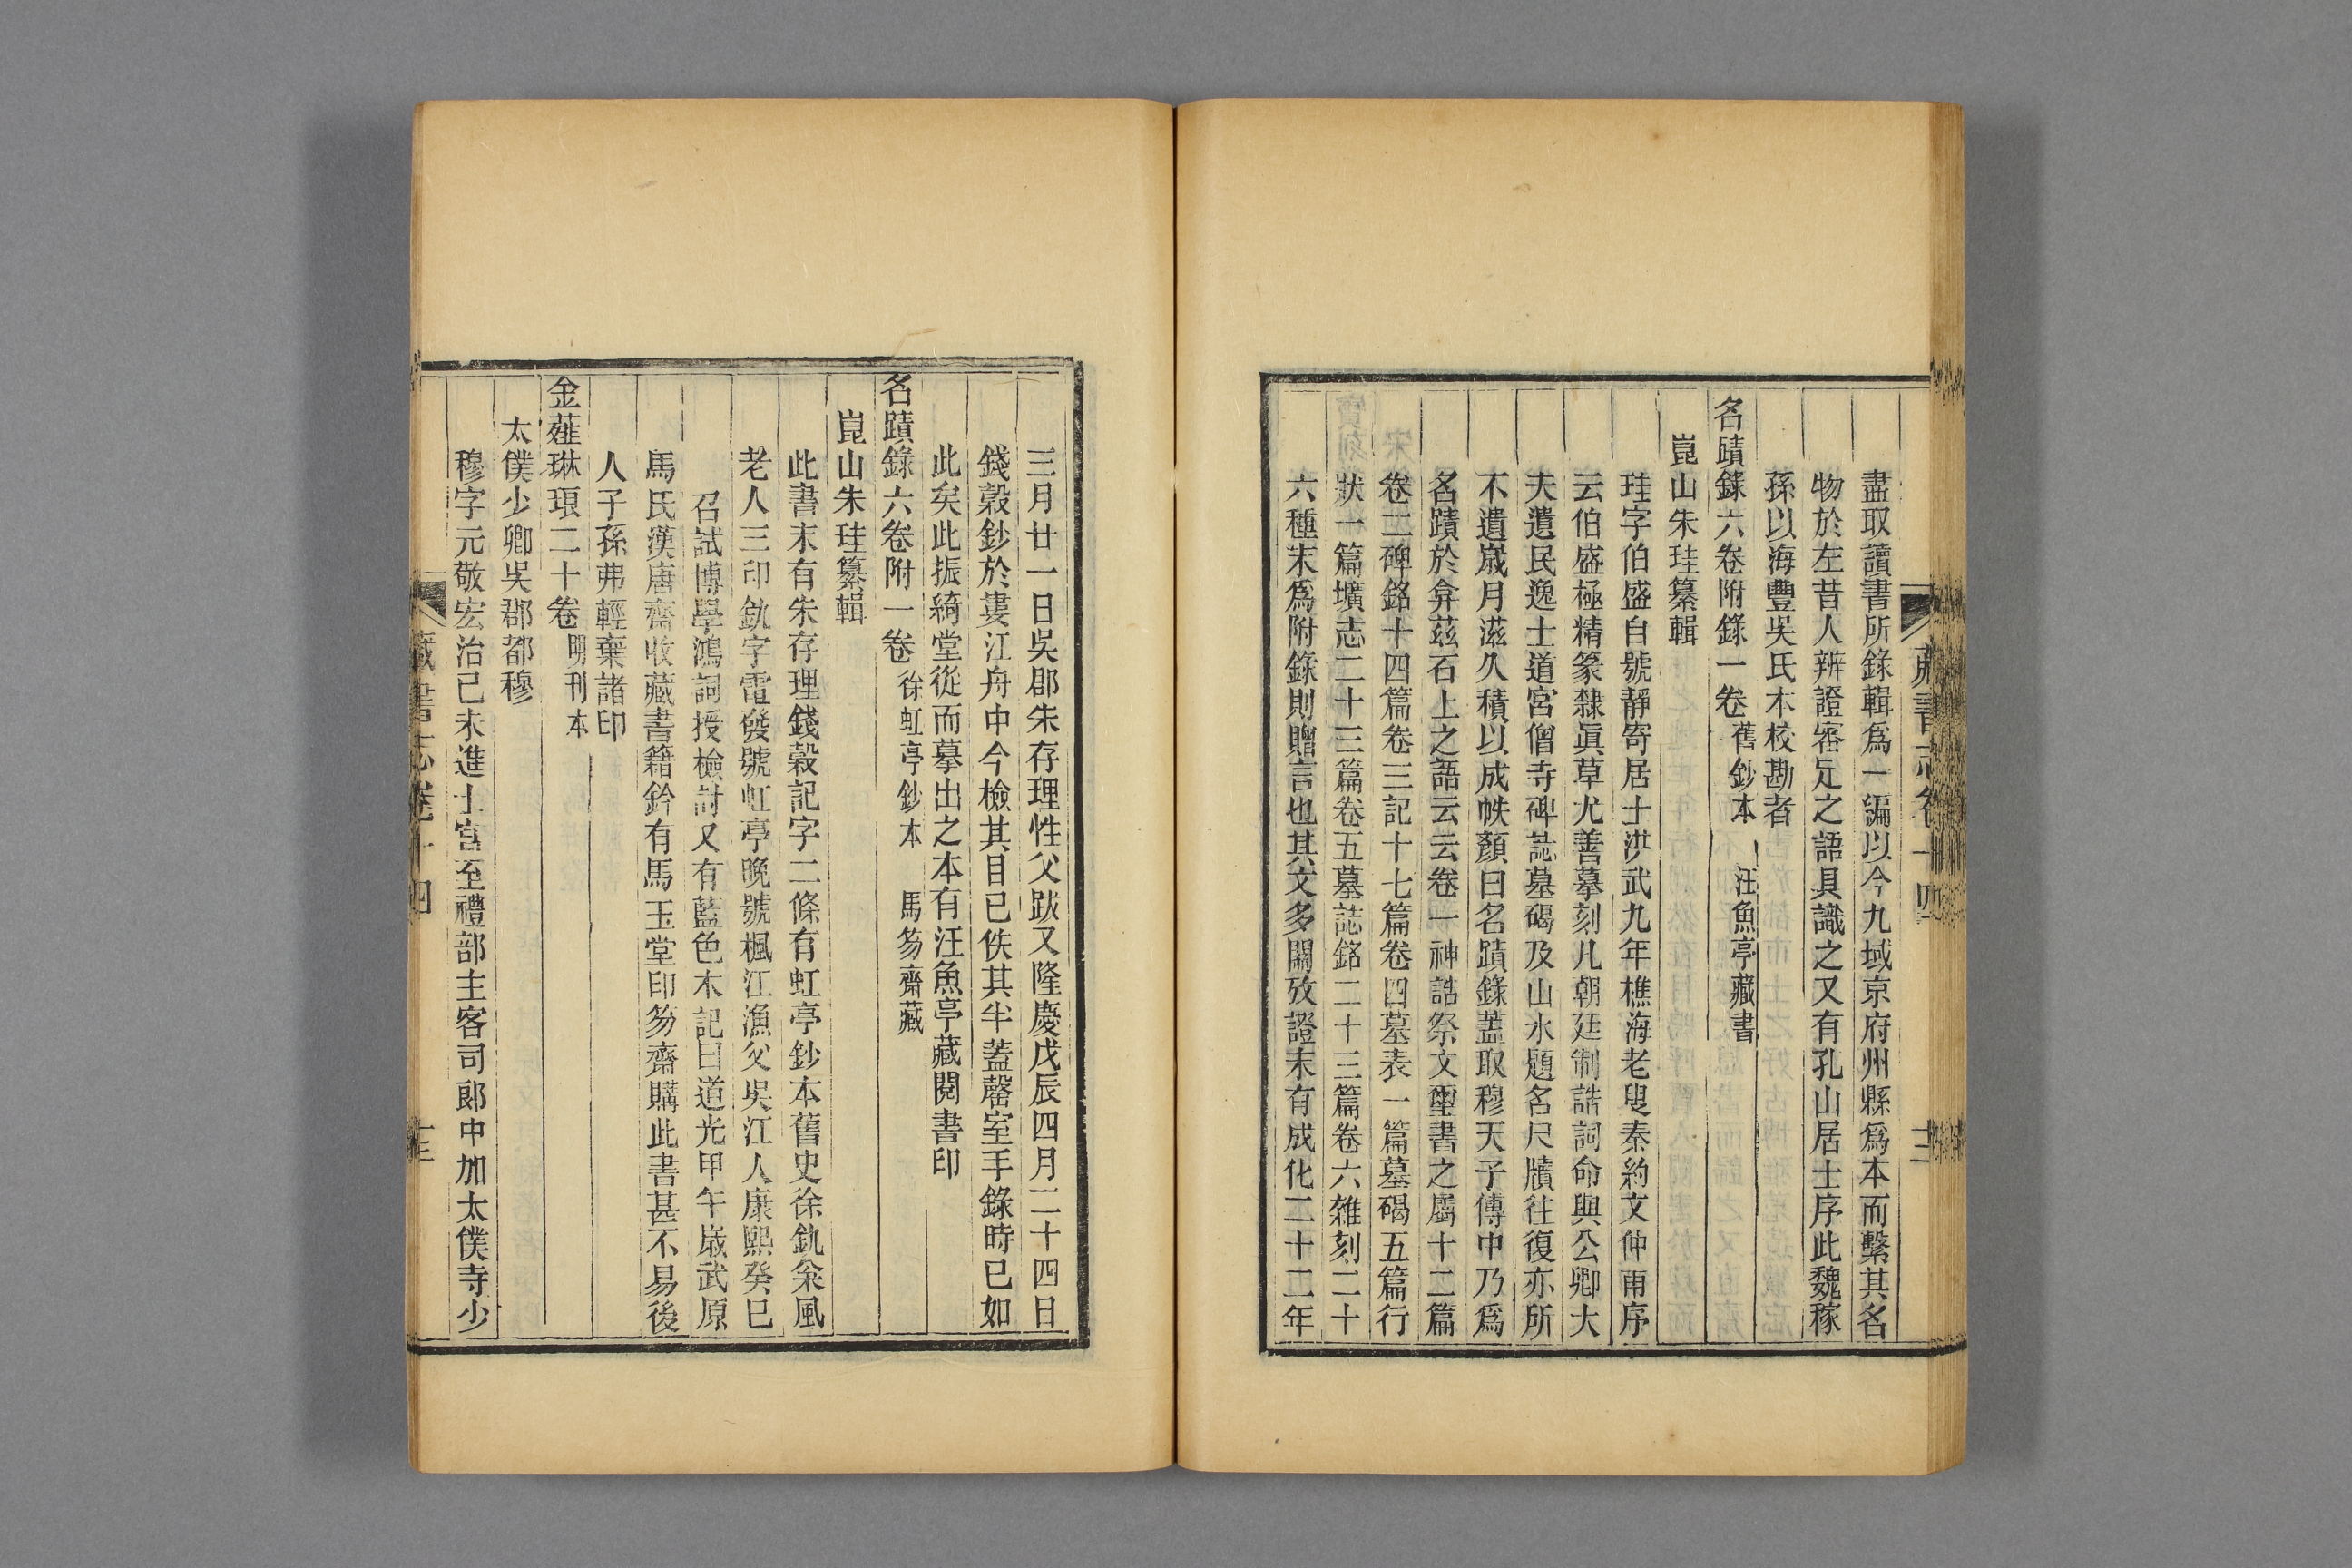 盡取讀書所錄輯爲一編以今九域京府州縣爲本而繫其名
物於左昔人辨證審定之語具識之又有孔山居士序此魏稼
孫以海豐吳氏本校勘者
名蹟錄六卷附錄一卷 舊鈔本 汪魚亭藏書
崑山朱珪纂輯
珪字伯盛自號靜寄居士洪武九年樵海老叟秦約文仲甫序
云伯盛極精篆隸眞草尤善摹刻凡朝廷制誥詞命與公卿大
夫遺民逸士道宮僧寺碑誌墓碣及山水題名尺牘往復亦所
不遺歲月滋久積以成帙顏曰名蹟錄蓋取穆天子傳中乃爲
名蹟於弇茲石上之語云云卷一神誥祭文璽書之屬十二篇
卷二碑銘十四篇卷三記十七篇卷四墓表一篇墓碣五篇行
狀一篇壙志二十三篇卷五墓誌銘二十三篇卷六雜刻二十
六種末爲附錄則贈言也其文多關攷證末有成化二十二年
藏書志卷十四
三月廿一日吳郡朱存理性父跋又隆慶戊辰四月二十四日
錢穀鈔於婁江舟中今檢其目已佚其半蓋罄室手錄時已如
此矣此振綺堂從而摹出之本有汪魚亭藏閱書印
名蹟錄六卷附一卷 徐虹亭鈔本 馬笏齋藏
崑山朱珪纂輯
此書末有朱存理錢穀記字二條有虹亭鈔本舊史徐釚釆風
老人三印釚字電發號虹亭晚號楓江漁父吳江人康熙癸巳
召試博學鴻詞授檢討又有藍色木記曰道光甲午歲武原
馬氏漢唐齋收藏書籍鈐有馬玉堂印笏齋購此書甚不易後
人子孫弗輕棄諸印
金薤琳琅二十卷 明刊本
太僕少卿吳郡都穆
穆字元敬宏治己未進士官至禮部主客司郎中加太僕寺少
藏書志卷十四